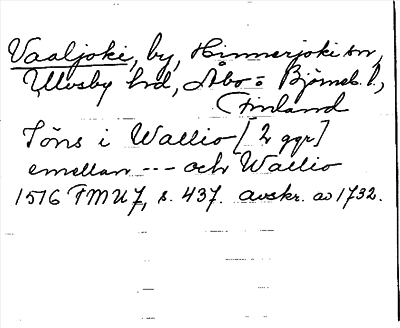 Vaaljoki, by, Hinnerjoki sn,
Ulvsby hd, Åbo = Björneb. l.,
Finland
Töns i Wallio [2 ggr]
emellan --- och Wallio
1516 FMU 7, s. 437. avskr. av 1732.